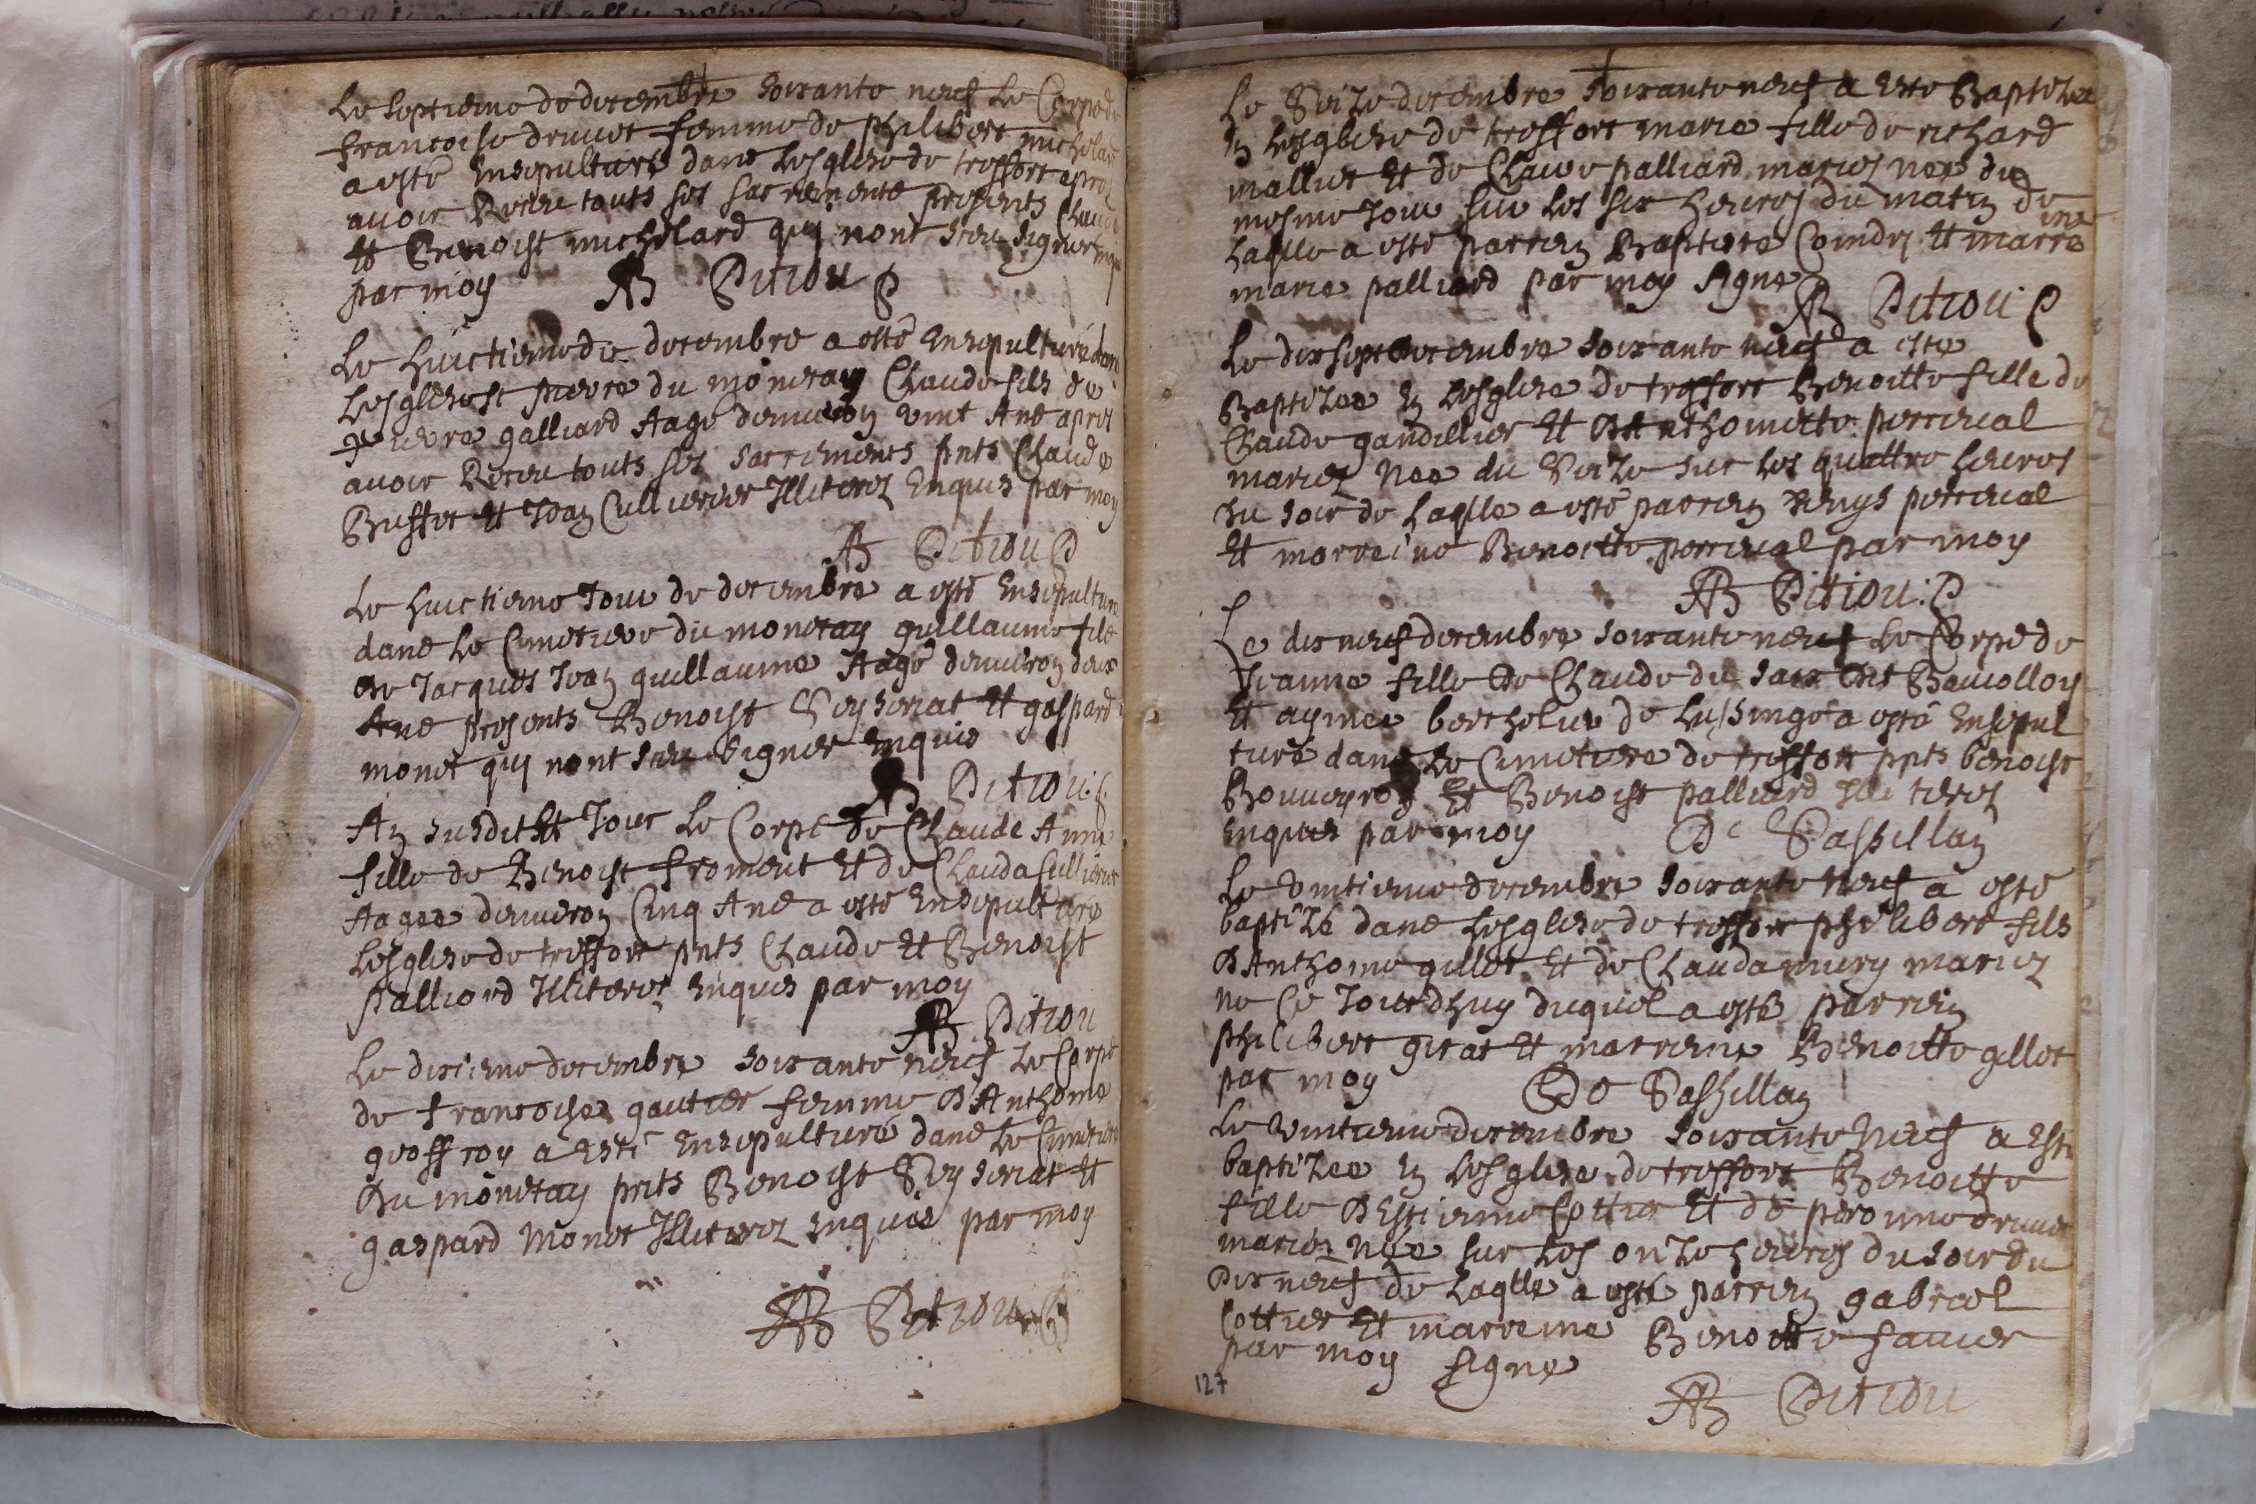 Le septieme de decembre soixante neuf Le Corps de
francoise druuet femme de philibert michelard
a esté Ensepulturé dans Lesglise de treffort apres
auoir Receu touts ses sacrements presents Claude
et Benoist michelard quj nont sceu signer
par moy AB Pitiou P
Le huictieme de decembre a esté Ensepulturé dans
Lesglise st pierre du monetay Claude fils de
pierre galliard Aagé denuiron vint Ans apres
auoir Receu touts ses sacrements pnts Claude
Buffet et Jean Cullierier Illiterez Enquis par moy
AB Pitiou P
Le huictieme Jour de decembre a esté Ensepulturé
dans Le Cimetiere du monetay guillaume fils
de Jacques Jean guillaume Aagé denuiron deux
Ans presents Benoist Veyseriat et gaspard
monet quj nont sceu signer Enquis
AB Pitiou P
An susdit et Jour Le Corps de Claude Anne
fille de Benoist froment et de Clauda Cullierier
Aagee denuiron Cinq Ans a esté Ensepulturé
Lesglise de treffort pnts Claude et Benoist
Palliard Illiterez Enquis par moy
AB Pitiou
Le dixieme decembre soixante neuf Le Corps
de francoise gautier femme D'Anthome
geoffroy a Esté Ensepulturé dans Le Cimetiere
Du monetay pnts Benoist Veyseriat et
gaspard Monet Illiterez Enquis par moy
AB Pitiou P
Le Seize decembre soixante neuf a Esté Baptizee
En Lesglise de treffort marie fille de richard
mallier et de Claude palliard mariez nee du
mesme Jour sur Les six heures du matin de
Laqlle a esté parrein Baptiste Coindry et marreine
marie palliard par moy signe
AB Pitiou P
Le dixsept decembre soixante neuf a este
Baptizee En Lesglise de treffort Benoitte fille de
Claude gandillier et D'Anthomette perceual
mariez Nee du Seize sur Les quattre heures
du soir de Laqlle a esté parrein Denys perceual
et marreine Benoitte perceual par moy
AB Pitiou P
Le dix neuf decembre soixante neuf Le Corps de
Jeanne fille de Claude du saix dit
et aymee berthelier de a esté Ensepul
turé dans Le Cimetiere de treffort pnts benoist
Bouueyron et Benoist palliard Illiterez
Enquis par moy De Sassillan
Le vintieme decembre soixante neuf a esté
baptizé dans Lesglise de treffort philibert fils
D'Anthome gillet et de Clauda mariez
ne Ce Jourdhuy duquel a esté parrein
philibert girat et marreine Benoitte gillet
par moy De Sassillan
Le vintieme decembre soixante neuf a Esté
baptizee En Lesglise de treffort Benoitte
fille D'Estienne Cottier et de peronne druuet
mariez Nee sur Les onze heures du soir du
Dixneuf de Laqlle a esté parrein gabriel
Cottier et marreine Benoitte fauier
par moy signe
AB Pitiou
127